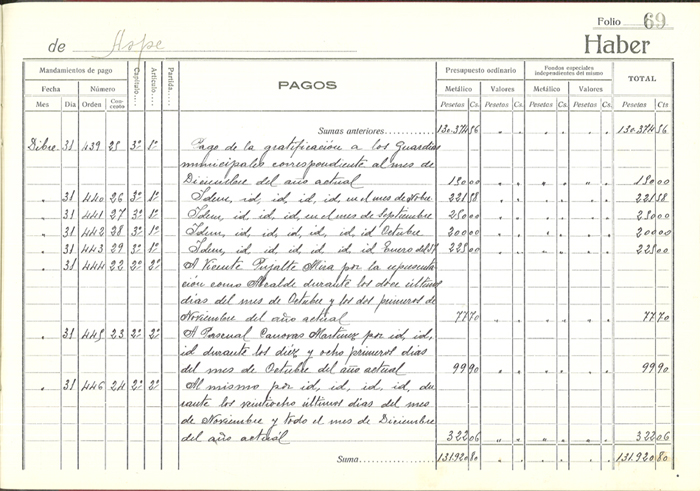 Folio 69
de Aspe Haber
Mandamientos de pago
Fecha Número
Mes Día Orden Con-cepto
Capítulo.... Artículo.... Partida....
PAGOS
Presupuesto ordinario
Metálico Valores
Pesetas Cs. Pesetas Cs.
Fondos especiales independientes del mismo
Metálico Valores
Pesetas Cs. Pesetas Cs.
TOTAL
Pesetas Cts
Sumas anteriores............ 130.374 56 " " " " " " 130.374 56
Dibre. 31 439 25 3º 1º Pago de la gratificación a los Guardias
municipales correspondiente al mes de
Diciembre del año actual 150 00 " " " " " " 150 00
" 31 440 26 3º 1º Idem, id, id, id, id, en el mes de Nobre 221 58 " " " " " " 221 58
" 31 441 27 3º 1º Idem, id, id, id, en el mes de Septiembre 250 00 " " " " " " 250 00
" 31 442 28 3º 1º Idem, id, id, id, id, id Octubre 200 00 " " " " " " 200 00
" 31 443 29 3º 1º Idem, id, id, id, id, id Enero del 225 00 " " " " " " 225 00
" 31 444 22 2º 2º A Vicente Pujalte Mira por la representa
ción como Alcalde durante los doce últimos
días del mes de Octubre y los dos primeros de
Noviembre del año actual 77 70 " " " " " " 77 70
" 31 445 23 2º 2º A Pascual Canovas Martinez por id, id,
id durante los diez y ocho primeros días
del mes de Octubre del año actual 99 90 " " " " " " 99 90
" 31 446 24 2º 2º Al mismo por id, id, id, id, du
rante los veintiocho últimos días del mes
de Noviembre y todo el mes de Diciembre
del año actual 322 06 " " " " " " 322 06
Suma.................... 131.920 80 " " " " " " 131.920 80